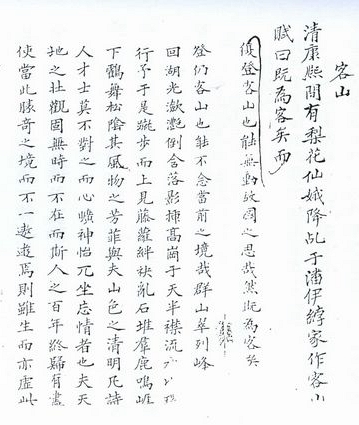 客山
清康熙間有梨花仙娥降乩于潘伊綍家作客山
賦曰既為客矣而
復登客山也能無動故園之思哉然既為客矣
登仍客山也能不念當前之境哉群山萃列峰
回湖光瀲灧倒含落影插高崗于天半襟流
行予于是聳步而上見藤蘿絆袂亂石堆鹿鳴崕
下鸛舞松陰其風物之芳菲與夫山色之清明凡詩
人才士莫不對之而心曠神怡兀坐忘情者也夫天
地之壯觀固無時而不在而斯人之百年終歸有盡
使當此勝奇之境而不一遨遊焉則雖生而亦虛此